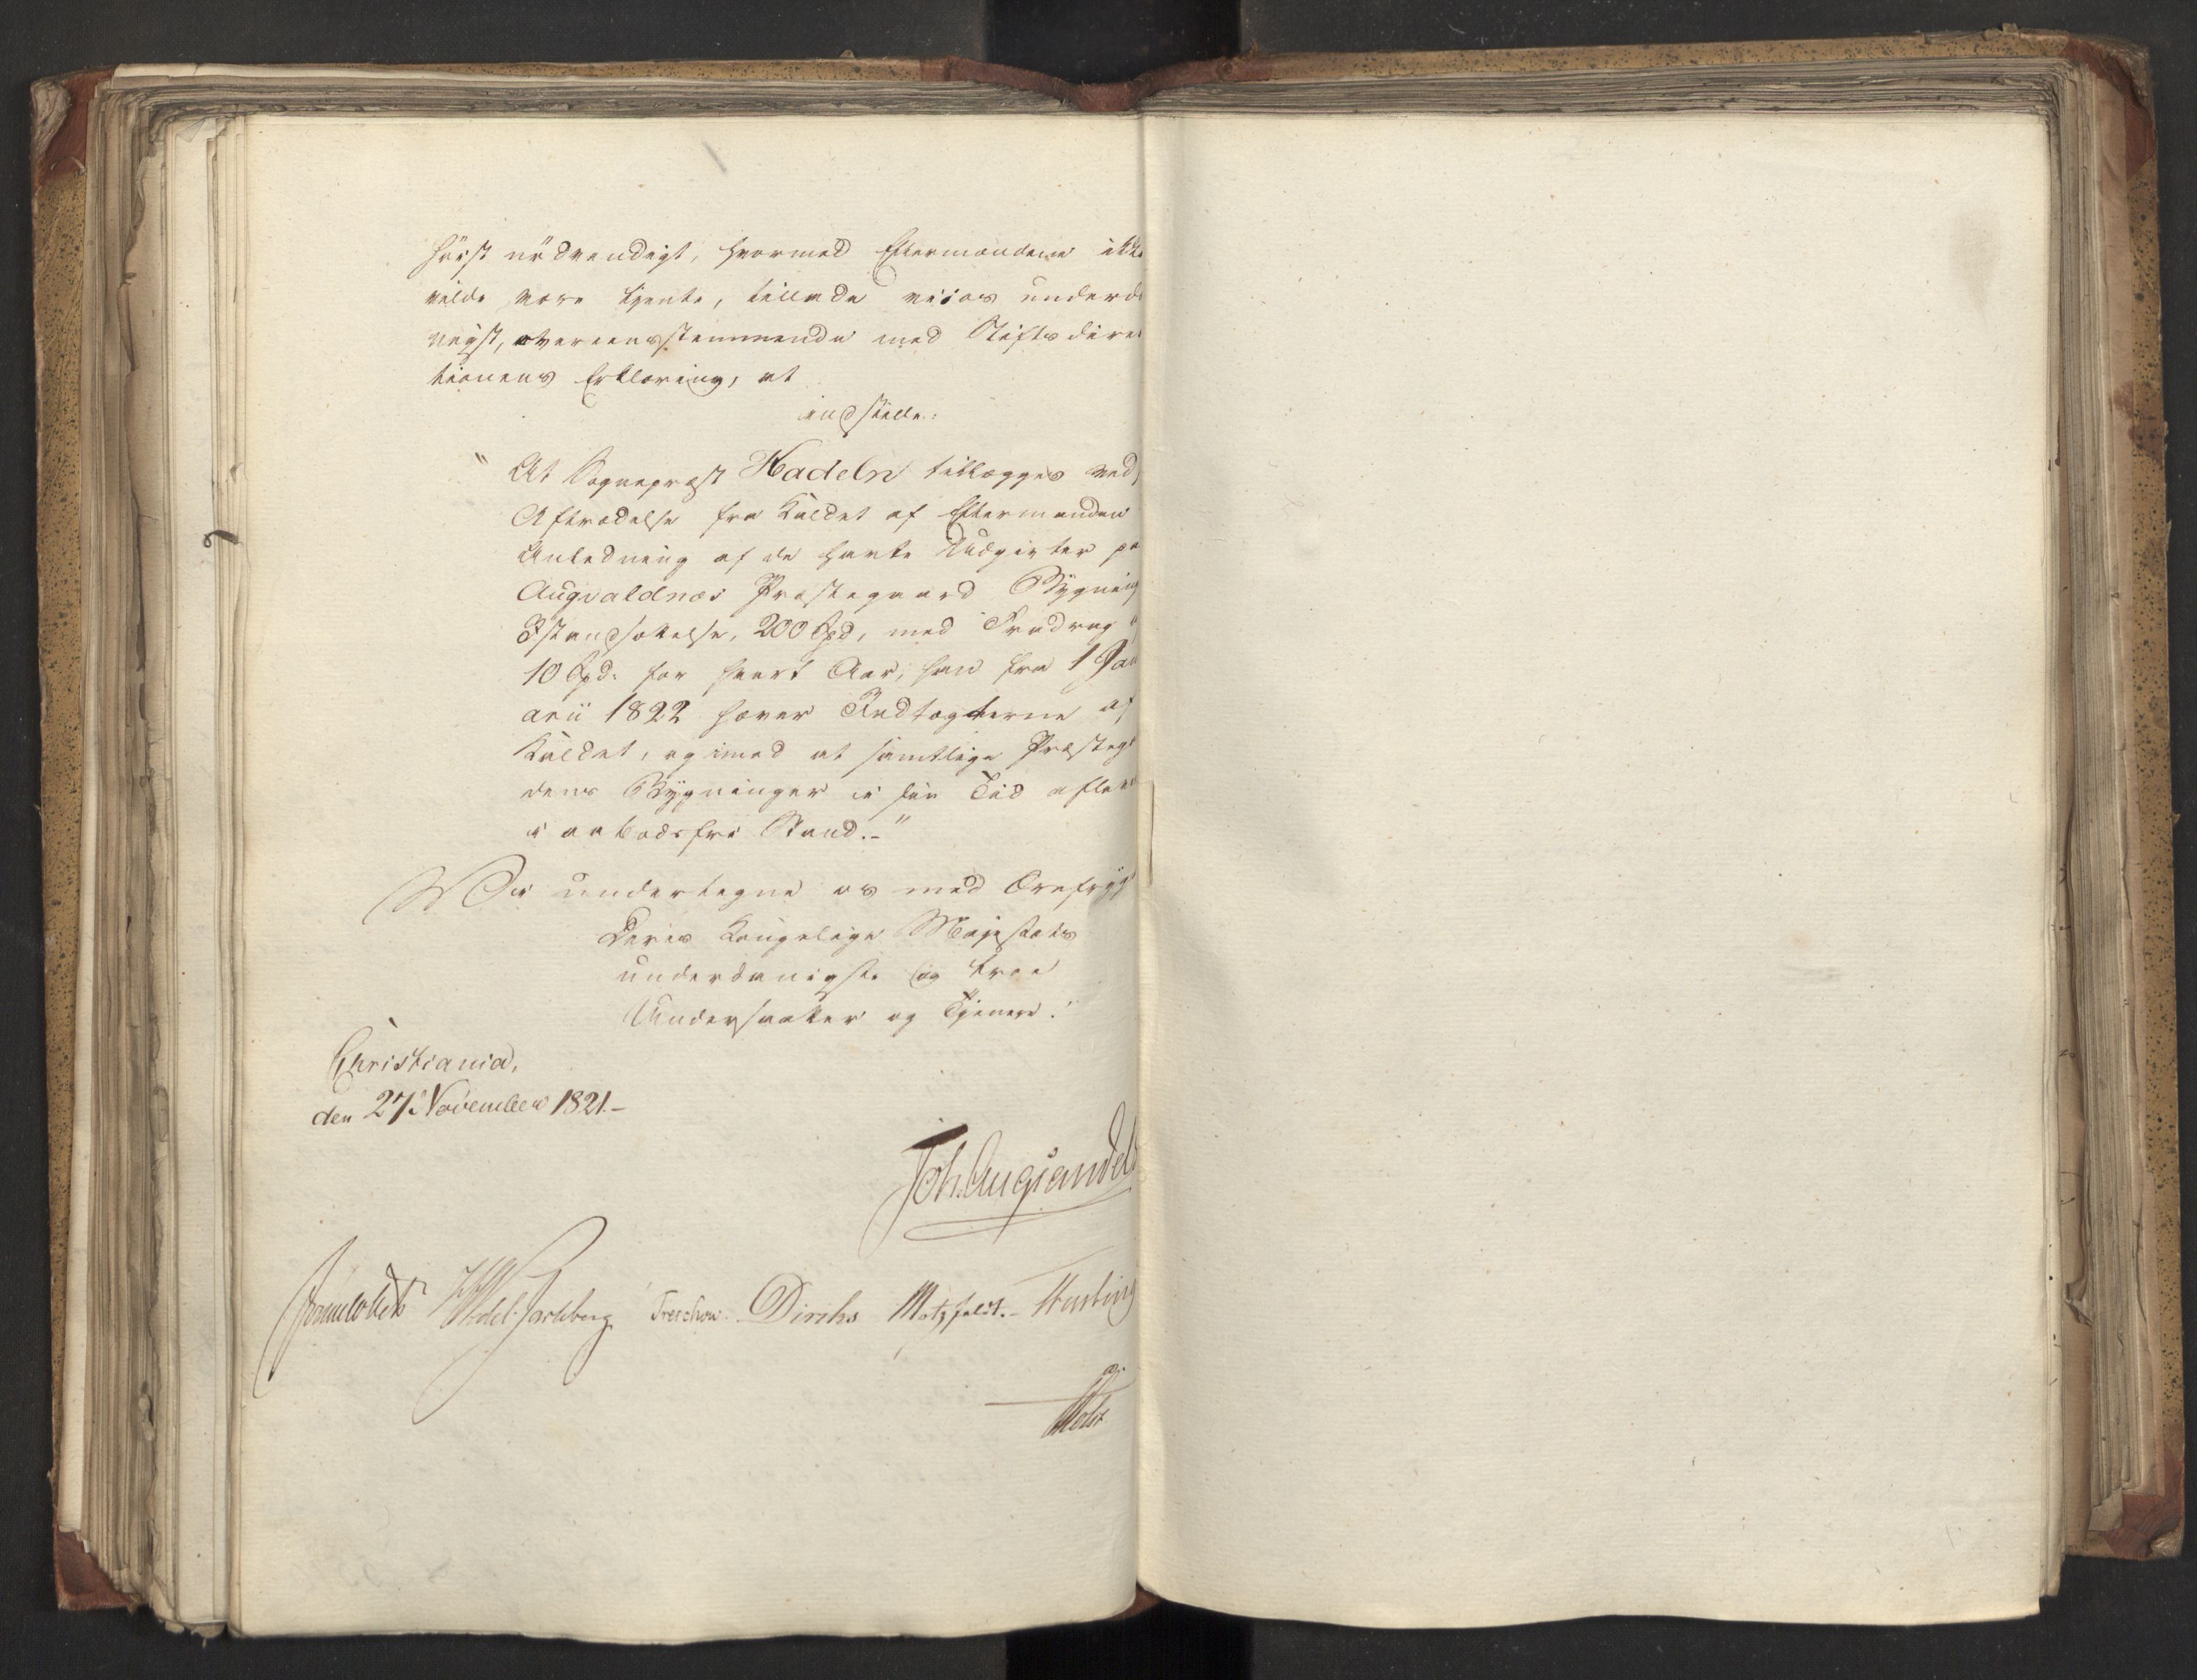 høist nødvendigt, hvormed Eftermændene ikke
vilde være tjente, tillade vi os underd
nigst, overeensstemmende med Stiftsdirec
tionens Erklæring, at
indstille:
"At Sognepræst Hadeln tillægges ved
Aftrædelse fra Kaldet af Eftermanden
Anledning af de havte Udgivter pa
Augvaldnæs Præstegaard Bygning
Istandsættelse, 200 Spd, med Fradrag
10 Spd: for hvert Aar, han fra 1 Jan
arii 1822 hæver Indtægterne af
Kaldet, og imod at samtlige Præstega
dens Bygninger i sin Tid aflev
i aabodsfri Stand.-"
Vi undertegne os med Ærefrygt
Deres Kongelige Majestæts
underdanigste og troe
Undersaatter og Tjenere.
Christiania,
den 27 November 1821.-
Joh. Aug Sandels
Sommerhielm Wedel-Jarlsberg Treschow. Diriks Motzfeldt.- Fasting
Holst